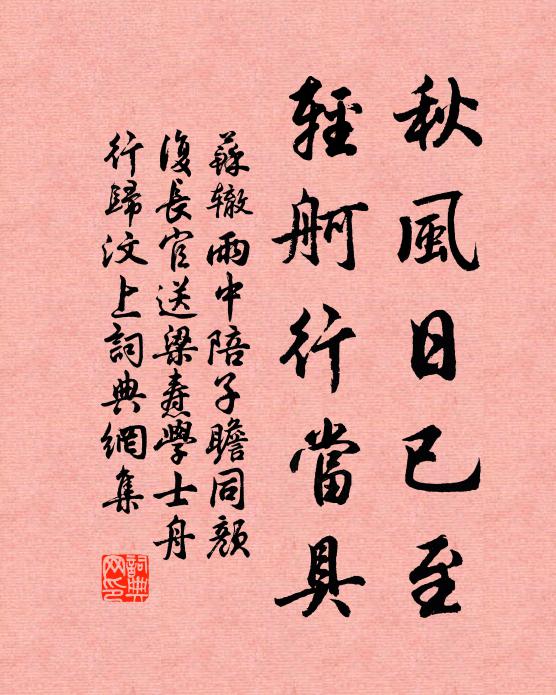 秋風日已至
輕舸行當具
蘇辙雨中陪子瞻同顏
復長官送梁燾學士舟
行歸汶上詞典網集
詞典
网印